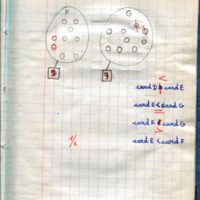 F G
9 7
<
card D card E
card E < card G
=
card E card G
>
card E < card F
1/2